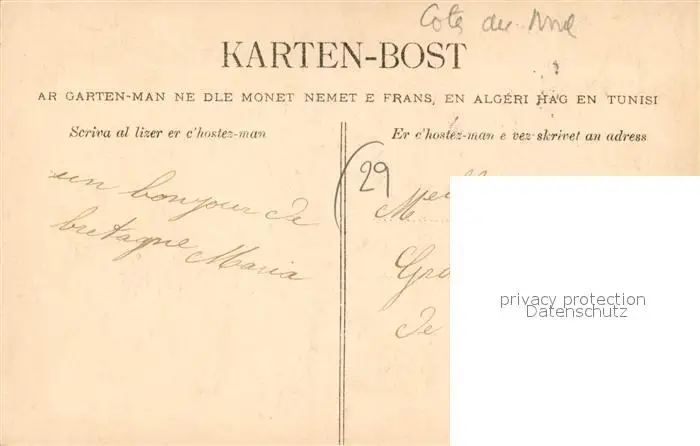 Cotes du Nord
KARTEN-BOST
AR GARTEN-MAN NE DLE MONET NEMET E FRANS, EN ALGÉRI HAG EN TUNISI
Scriva al lizer er c'hostez-man
Er c'hostez-man e vez skrivet an adress
un bonjour de
bretagne Maria
29
Melle
Gra
de
privacy protection
Datenschutz